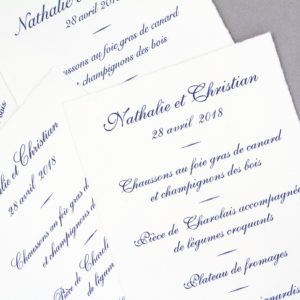 Nathalie et Christian
28 avril 2018
Chaussons au foie gras de canard
et champignons des bois
Nathalie et Christian
28 avril 2018
Chaussons au foie gras d
et champignons d
Pièce de Charol
Nathalie et Christian
28 avril 2018
Chaussons au foie gras de canard
et champignons des bois
Pièce de Charolais accompagnée
de légumes croquants
Plateau de fromages